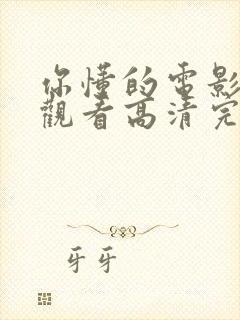 你懂的电影
觀看高清完
牙牙